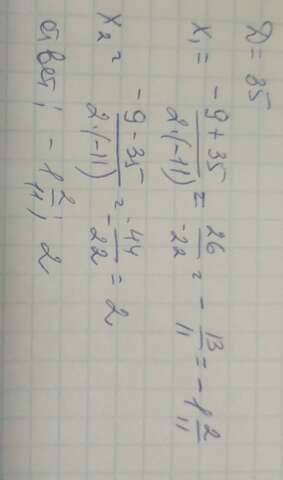 D = 35
x₁ = (-9+35)/(2·(-11)) = 26/-22 = -13/11 = -1 2/11
x₂ = (-9-35)/(2·(-11)) = -44/-22 = 2
Ответ: -1 2/11; 2